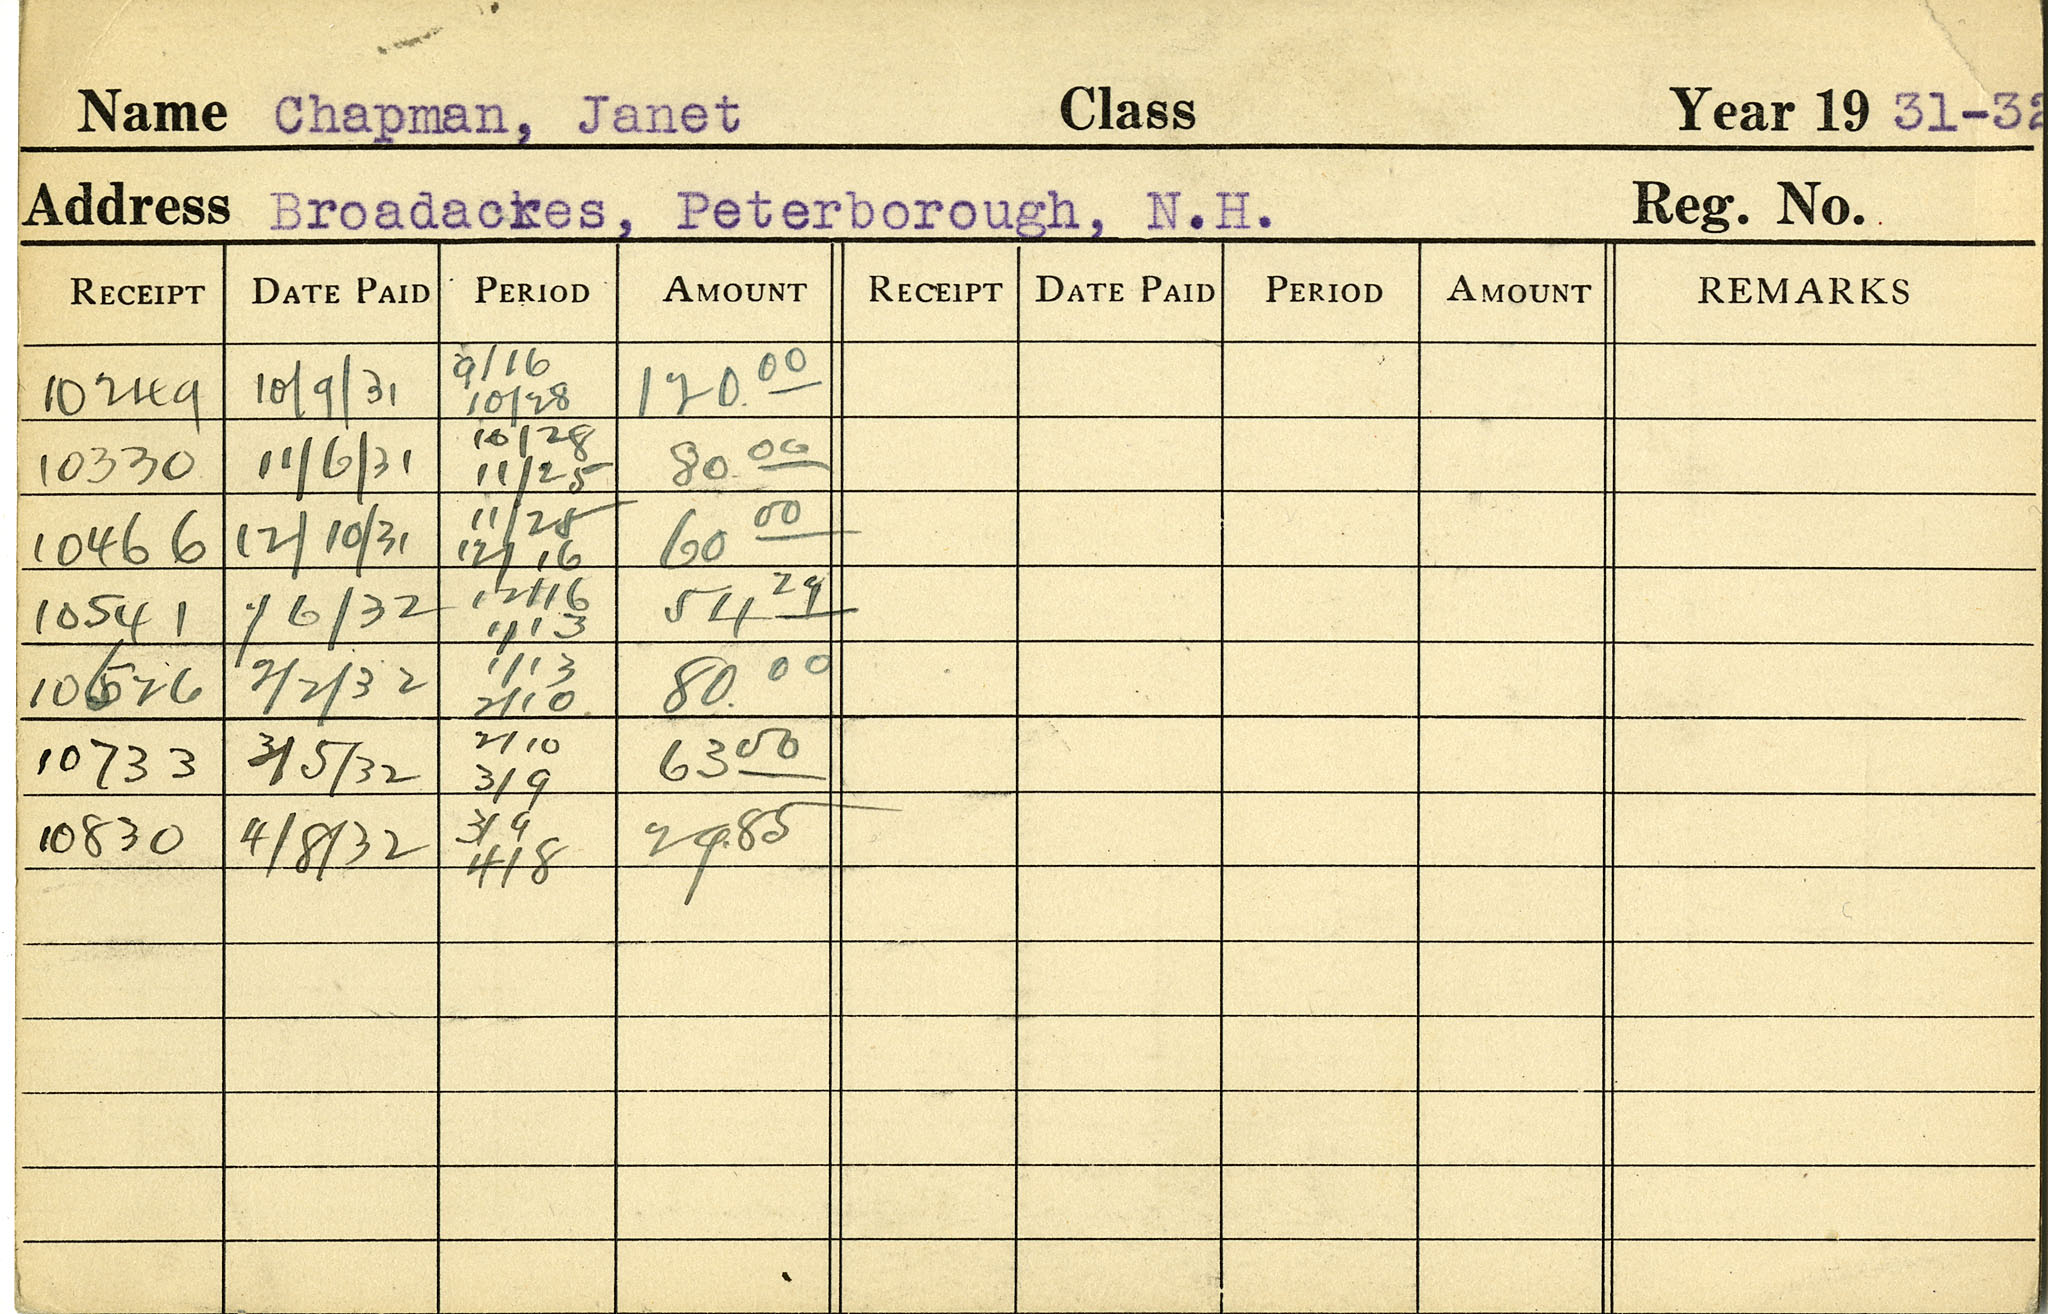 Name Chapman, Janet Class Year 19 31-32
Address Broadackes, Peterborough, N.H. Reg. No.
RECEIPT DATE PAID PERIOD AMOUNT RECEIPT DATE PAID PERIOD AMOUNT REMARKS
9/16
10249 10/9/31 10/28 120.00
10/28
10330 11/6/31 11/25 80.00
11/25
10466 12/10/31 12/16 60 00
12/16
10541 1/6/32 1/13 54 29
1/13
10626 2/2/32 2/10 80.00
2/10
10733 3/5/32 3/9 63 00
3/9
10830 4/8/32 4/8 29.85